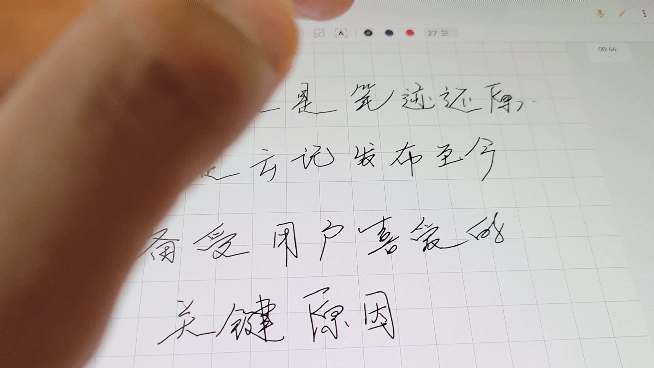 27
00:44
是笔迹还原，
是云记发布至今
备受用户喜爱的
关键原因